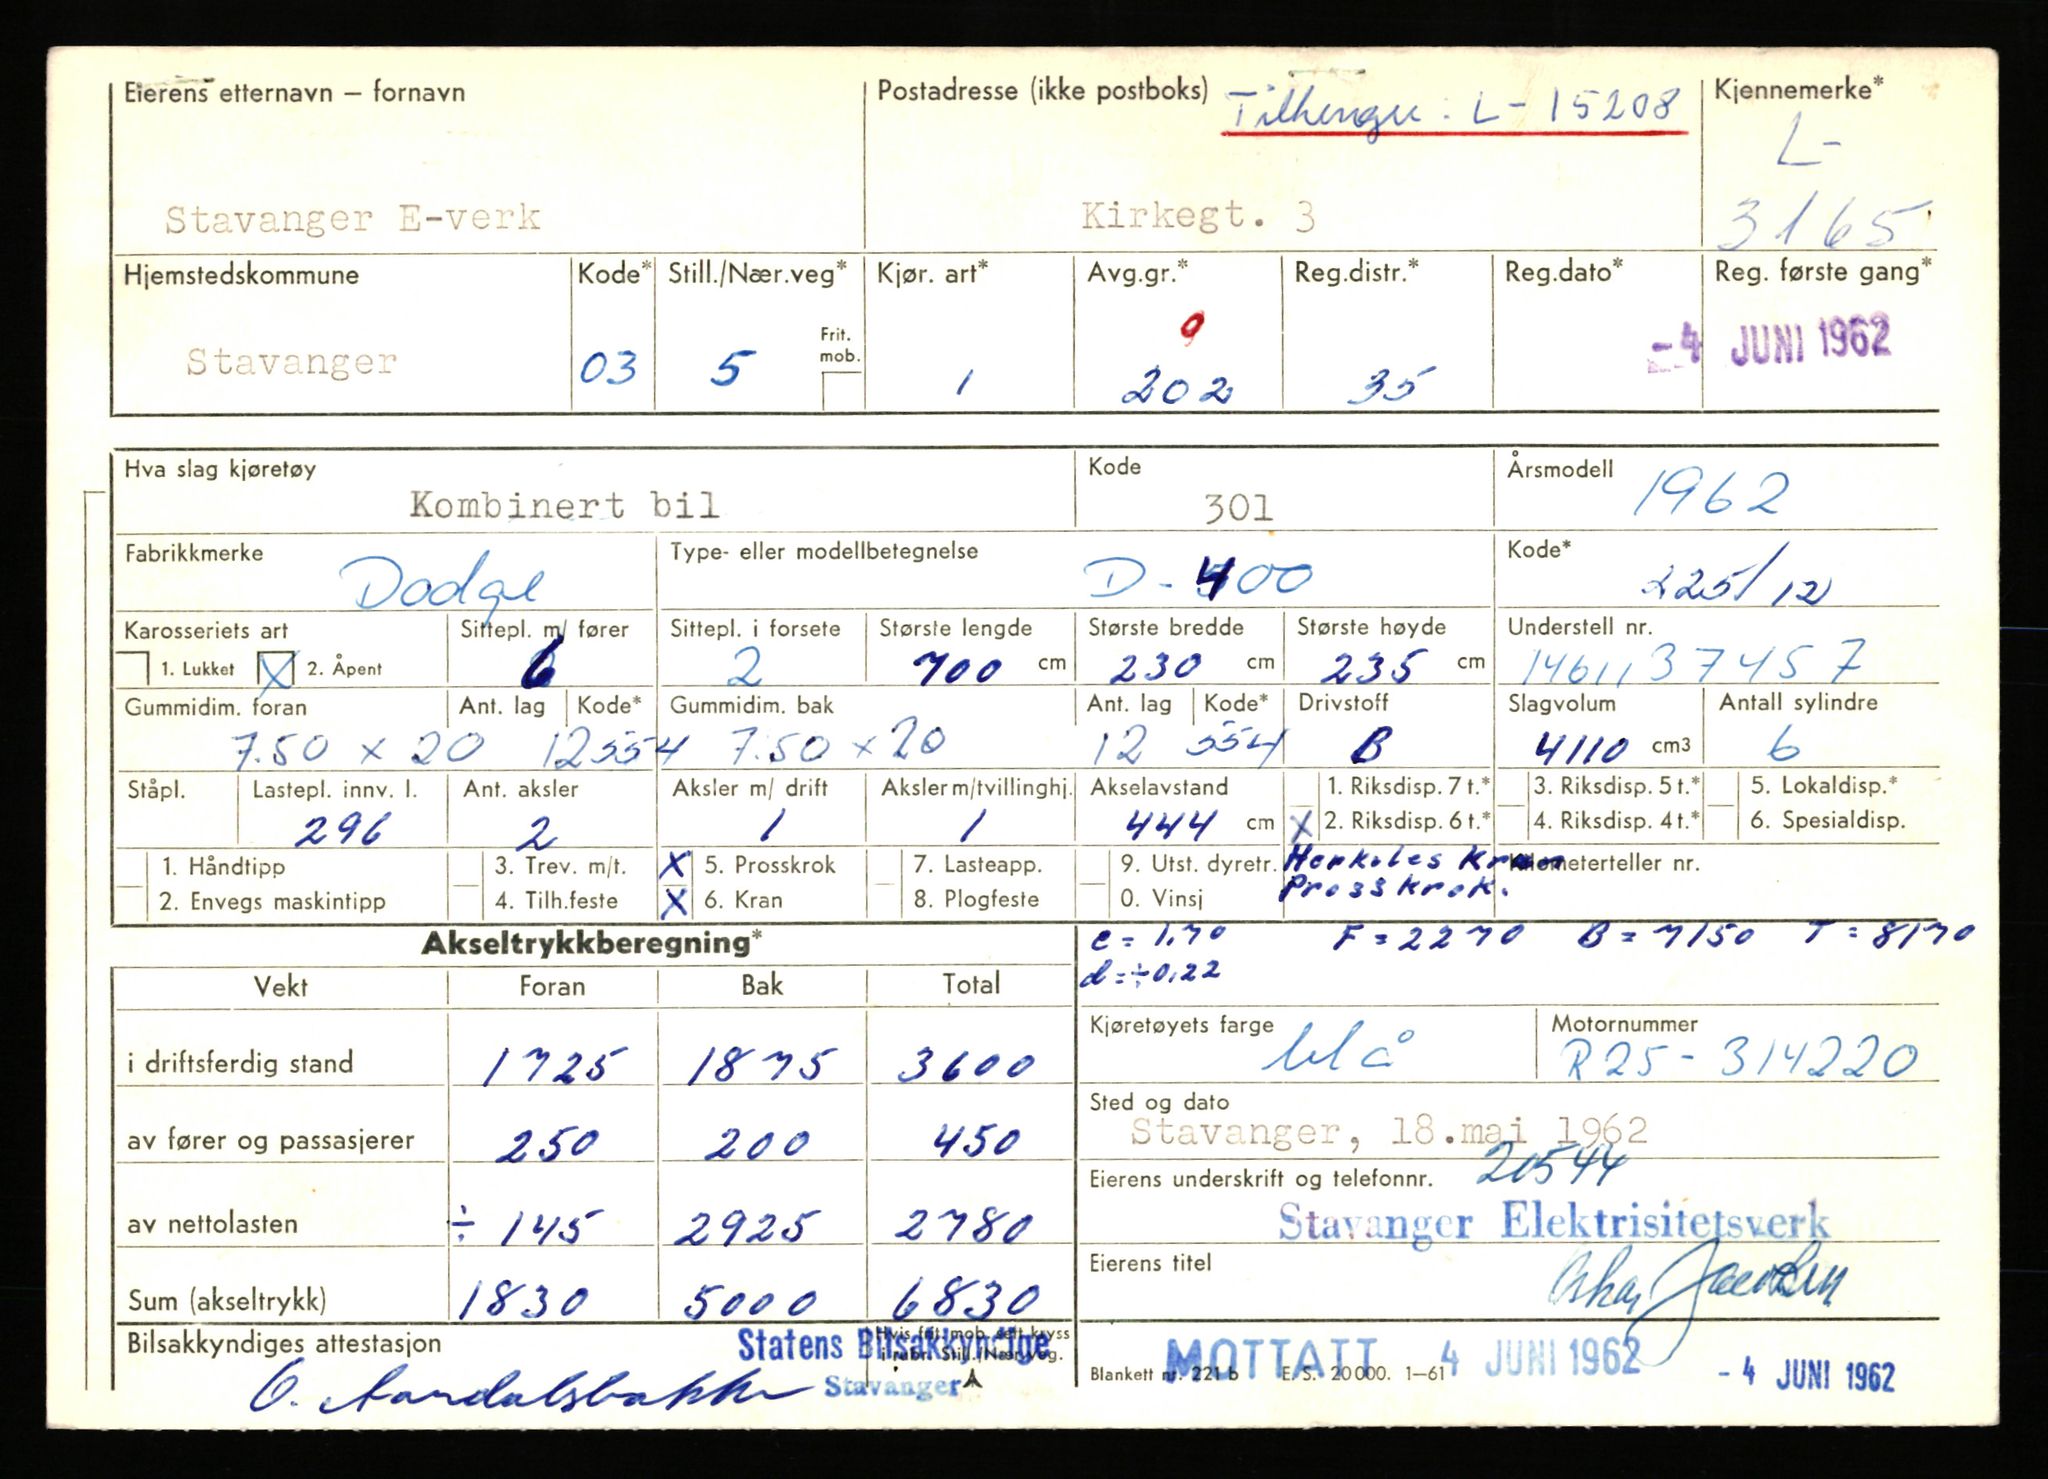 Eierens etternavn – fornavn Postadresse (ikke postboks) Tilhenger: L-15208 Kjennemerke*
L-
Stavanger E-verk Kirkegt. 3 3165
Hjemstedskommune Kode* Still./Nær.veg* Kjør. art* Avg.gr.* Reg.distr.* Reg.dato* Reg. første gang*
9
Frit. mob.
Stavanger 03 5 1 202 35 -4 JUNI 1962
Hva slag kjøretøy Kode Årsmodell
Kombinert bil 301 1962
Fabrikkmerke Type- eller modellbetegnelse Kode*
Dodge D-400 225/12
Karosseriets art Sittepl. m/ fører Sittepl. i forsete Største lengde Største bredde Største høyde Understell nr.
1. Lukket X 2. Åpent 6 2 700 cm 230 cm 235 cm 1461137457
Gummidim. foran Ant. lag Kode* Gummidim. bak Ant. lag Kode* Drivstoff Slagvolum Antall sylindre
7.50 x 20 12 554 7.50 x 20 12 554 B 4110 cm3 6
Ståpl. Lastepl. innv. l. Ant. aksler Aksler m/ drift Aksler m/tvillinghj. Akselavstand 1. Riksdisp. 7 t.* 3. Riksdisp. 5 t.* 5. Lokaldisp.*
296 2 1 1 444 cm X 2. Riksdisp. 6 t.* 4. Riksdisp. 4 t.* 6. Spesialdisp.
1. Håndtipp 3. Trev. m/t. X 5. Prosskrok 7. Lasteapp. 9. Utst. dyretr. Herkules Kran Kilometerteller nr.
2. Envegs maskintipp 4. Tilh.feste X 6. Kran 8. Plogfeste 0. Vinsj Prosskrok.
Akseltrykkberegning* c = 1.70 F = 2270 B = 7150 T = 8170
d = ÷0,22
Vekt Foran Bak Total
Kjøretøyets farge Motornummer
i driftsferdig stand 1725 1875 3600 blå R25-314220
Sted og dato
av fører og passasjerer 250 200 450 Stavanger, 18.mai 1962
Eierens underskrift og telefonnr. 20544
av nettolasten ÷ 145 2925 2780 Stavanger Elektrisitetsverk
Eierens titel
Sum (akseltrykk) 1830 5000 6830
Bilsakkyndiges attestasjon Statens Bilsakkyndige Hvis frit. mob. sett kryss
i rubr. Still./Nær.veg.
MOTTATT 4 JUNI 1962 -4 JUNI 1962
Stavanger Blankett nr. 221 b E. S. 20 000. 1–61